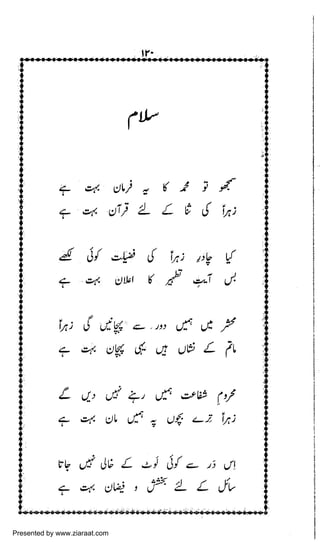 ۱۲۰
سلام
سمجھو تو محمدؐ کا یہ فرمان بہت ہے
زہراؑ کی ثنا کے لئے قرآن بہت ہے
کیا چادرِ زہراؑ کی فضیلت کوئی لکھے
بس آیتِ تطہیر کا اعلان بہت ہے
محشر میں ہمیں دور سے پہچانیں گی زہراؑ
ماتم کے نشاں ہیں یہی پہچان بہت ہے
محرومِ شفاعت ہمیں رہنے نہیں دیں گے
زہراؑ ترے بچوں پہ ہمیں مان بہت ہے
اِس دَر سے کوئی لَوٹ کے خالی نہیں جاتا
سائل کے لئے بخشش و فیضان بہت ہے
Presented by www.ziaraat.com